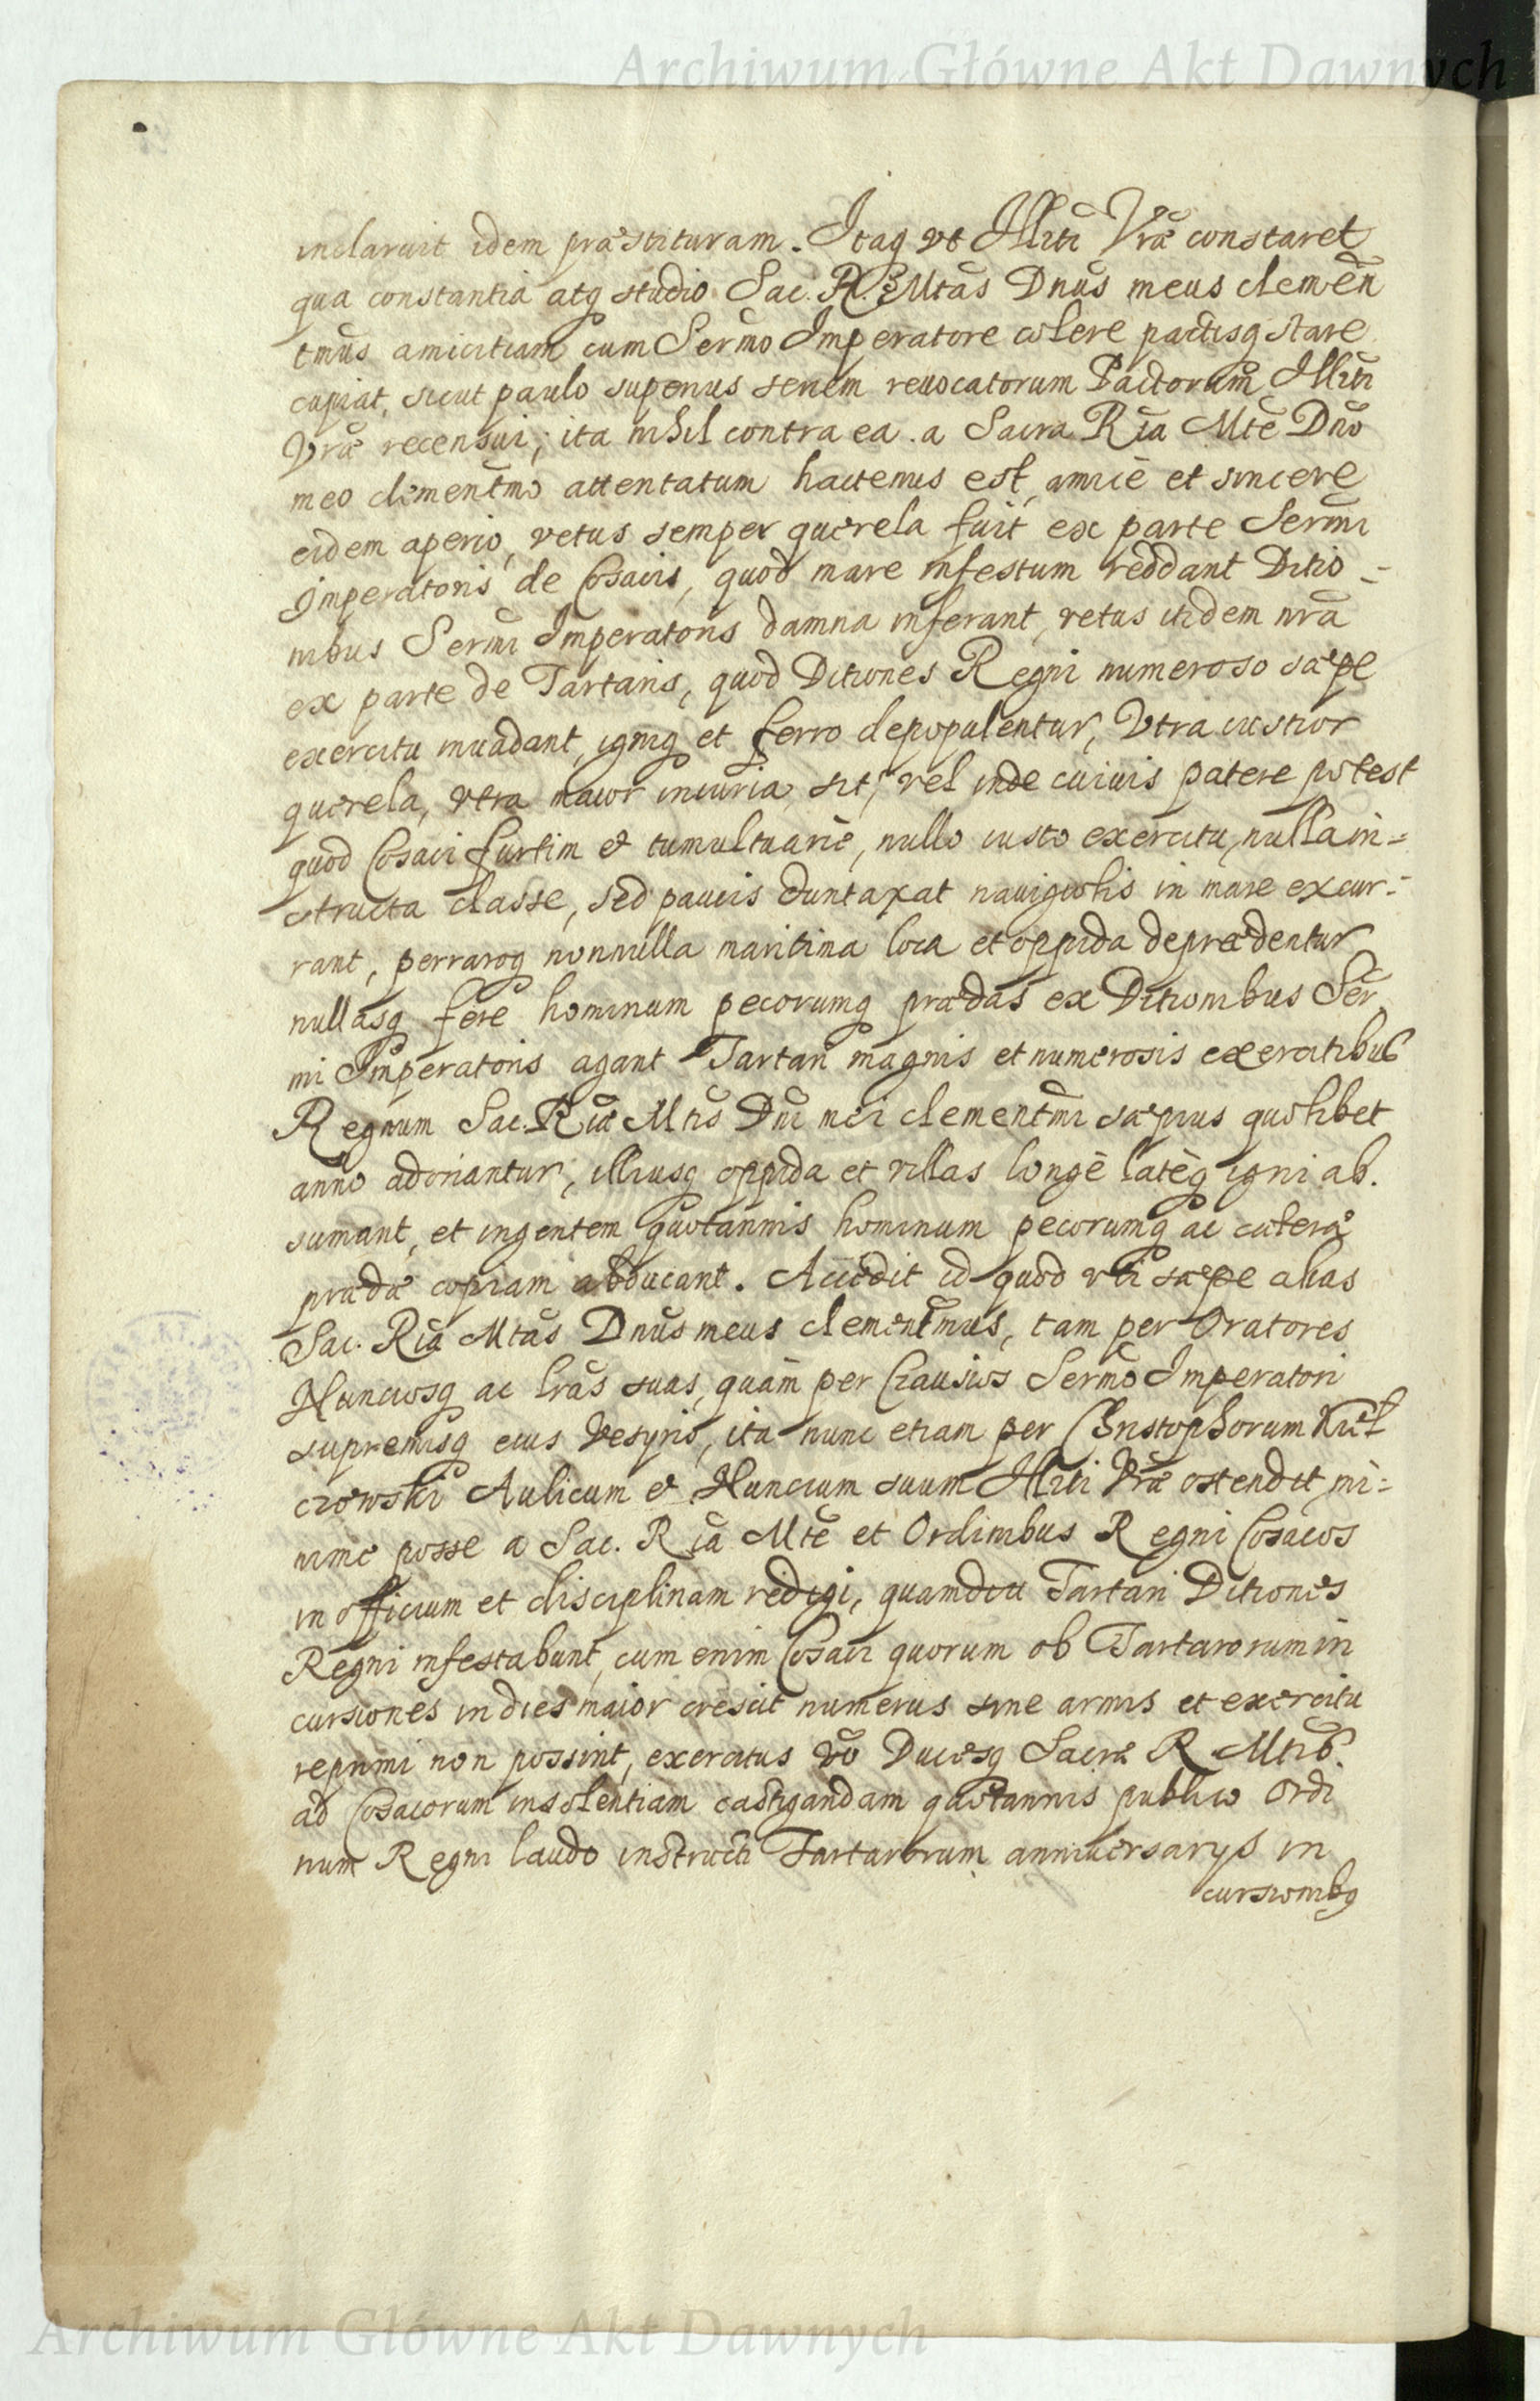 Archiwum Główne Akt Dawnych
inclaruit idem præstituram. Itaq vt Illrti Vræ constaret
qua constantia atq studio Sac. R. Mtas Dnus meus clemen
tmus amicitiam cum Sermo Imperatore colere pactisq stare
cupiat, sicut paulo superius seriem reuocatorum Pactorum Illrti
Vræ recensui, ita nihil contra ea a Sacra Ria Mte Dno
meo clementmo attentatum hactenus est, amicè et sincere
eidem aperio, vetus semper querela fuit ex parte Sermi
Imperatoris de Cosacis, quod mare infestum reddant Ditio-
nibus Sermi Imperatoris damna inferant, vetus itidem nra
ex parte de Tartaris, quod Ditiones Regni numeroso sæpe
exercitu inuadant, igniq et ferro depopulentur, Vtra iustior
querela, vtra maior iniuria sit, vel inde cuiuis patere potest
quod Cosaci furtim & tumultuariè, nullo iusto exercitu, nulla in=
structa classe, sed paucis duntaxat nauigiolis in mare excur-
rant, perraroq nonnulla maritima loca et oppida deprædentur
nullasq fere hominum pecorumq prædas ex Ditionibus Ser
mi Imperatoris agant Tartari magnis et numerosis exercitibus
Regnum Sac. Riæ Mtis Dni mei clementmi sæpius quolibet
anno adoriantur, illiusq oppida et villas longè latèq igni ab.
sumant, et ingentem quotannis hominum pecorumq ac cæteræ
prædæ copiam abducant. Accedit id quod vti sæpe alias
Sac. Ria Mtas Dnus meus clementmus, tam per Oratores
Nunciosq ac lras suas, quàm per Czausios Sermo Imperatori
supremisq eius Vesyris, ita nunc etiam per Christophorum Kul
czowski Aulicum & Nuncium suum Illrti Vræ ostendit mi=
nime posse a Sac. Ria Mte et Ordinibus Regni Cosacos
in officium et disciplinam redigi, quamdiu Tartari Ditiones
Regni infestabunt, cum enim Cosaci quorum ob Tartarorum in
cursiones in dies maior crescit numerus sine armis et exercitu
reprimi non possint, exercitus vo Ducesq Sacræ R Mtis
ad Cosacorum insolentiam castigandam quotannis publico Ordi
num Regni laudo instructi Tartarorum anniuersarys in
cursionibq
Archiwum Główne Akt Dawnych